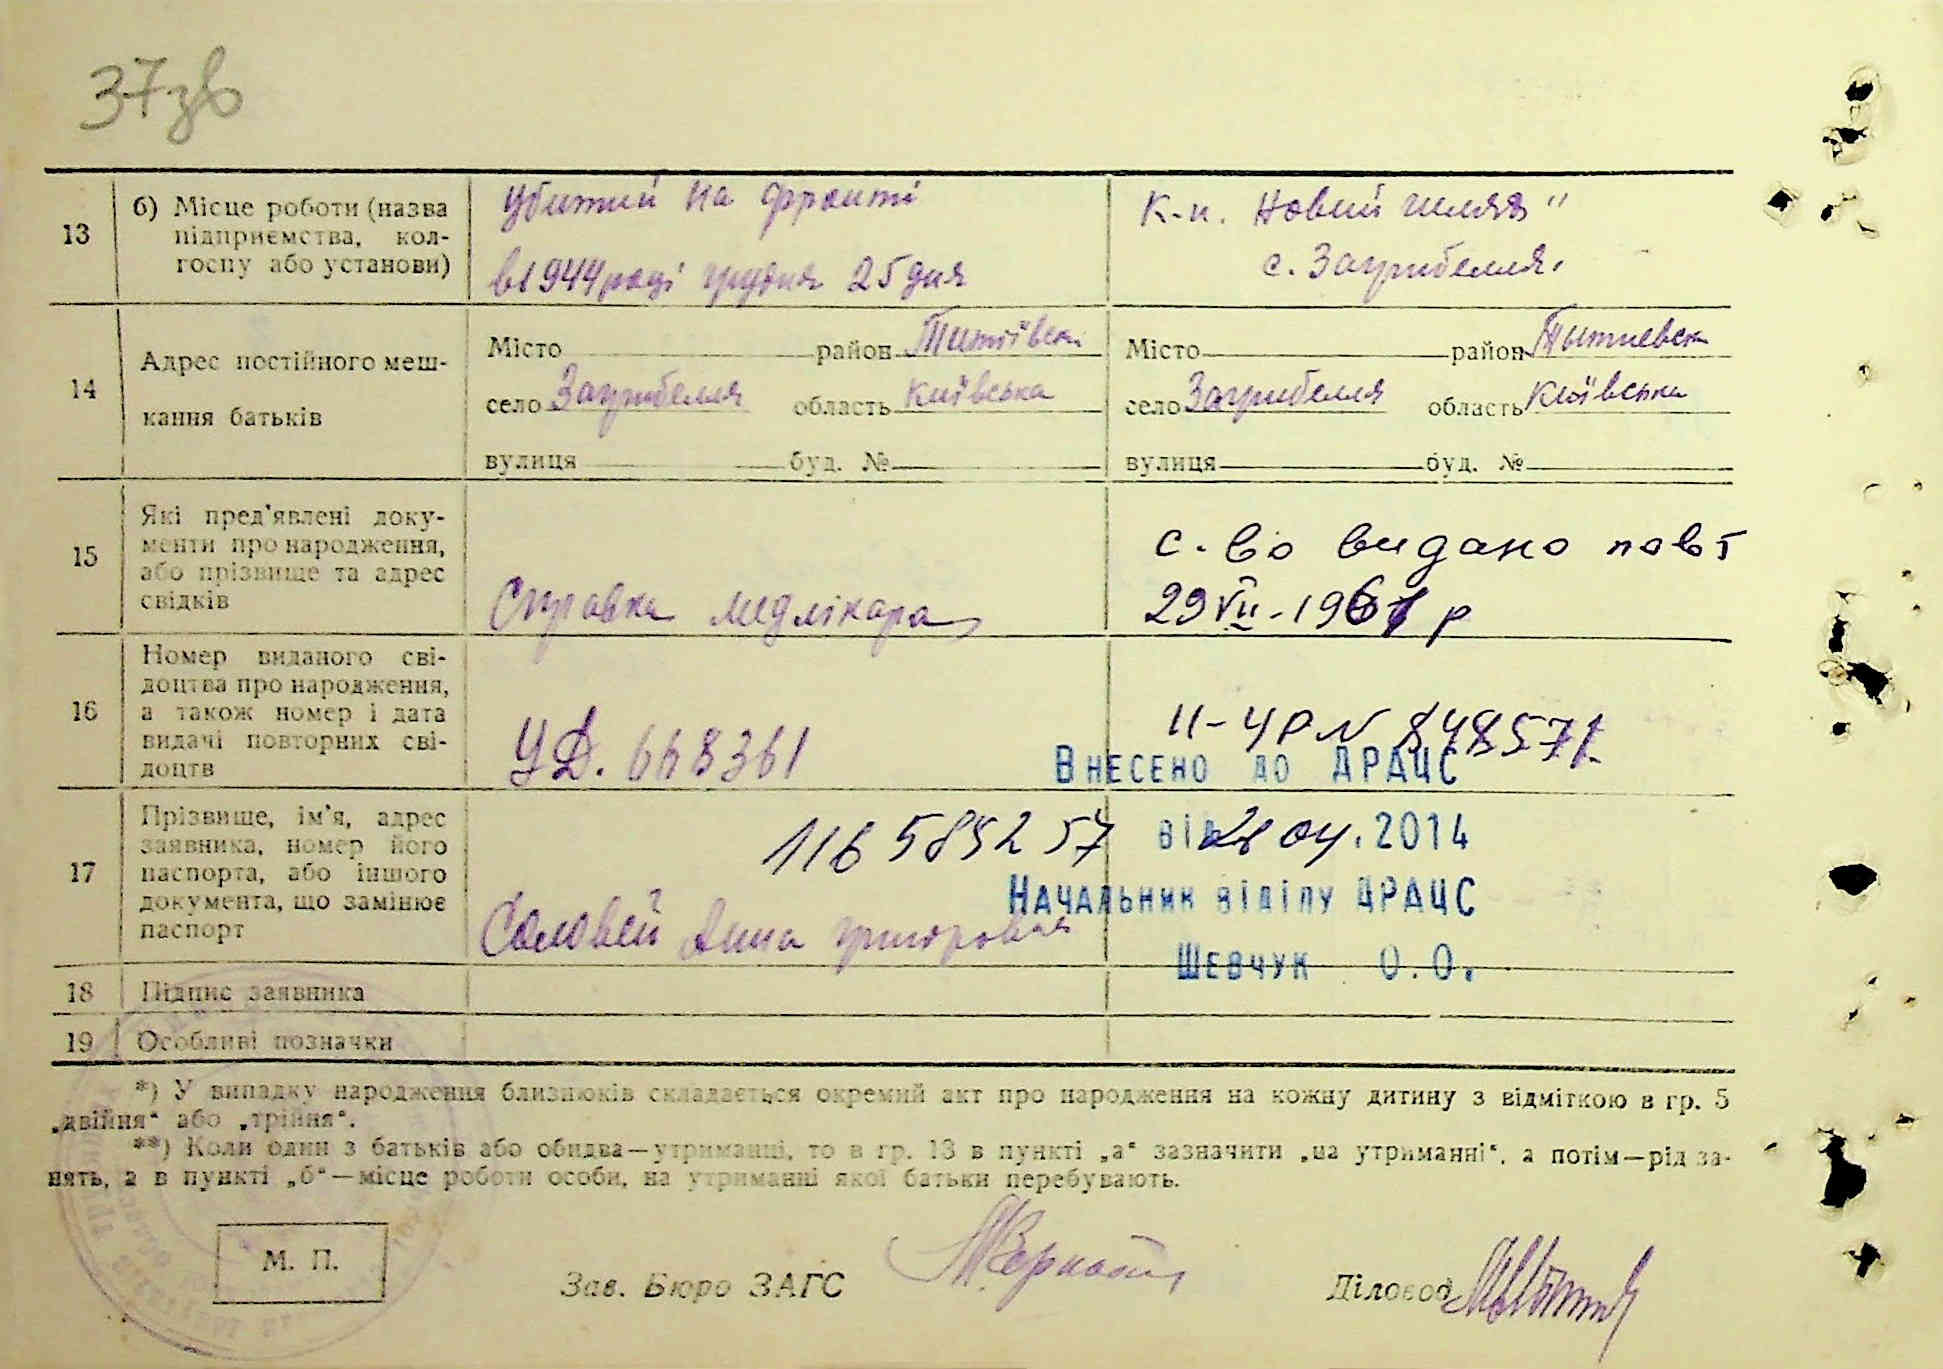 37зв
13
б) Місце роботи (назва
підприємства, кол-
госпу або установи)
Убитий на фронті
в 1944 році грудня 25 дня
К-п. Новий шлях"
с. Загрибелля.
14
Адрес постійного меш-
кання батьків
Місто район Титіївськ
село Загрибелля область Київська
вулиця буд. №
Місто район Тытиевськ
село Загрибелля область Київська
вулиця буд. №
15
Які пред'явлені доку-
менти про народження,
або прізвище та адрес
свідків
Справка медлікара
с-во видано повт
29 VII-1961 р
16
Номер виданого сві-
доцтва про народження,
а також номер і дата
видачі повторних сві-
доцтв
УД. 668361
II-УР N 848571
Внесено до ДРАЦС
17
Прізвище, ім'я, адрес
заявника, номер його
паспорта, або іншого
документа, що замінює
паспорт
116 585257
від 28 04.2014
Начальник відділу ДРАЦС
Соловей Анна григоровна
Шевчук О.О.
18
Підпис заявника
19
Особливі позначки
*) У випадку народження близнюків складається окремий акт про народження на кожну дитину з відміткою в гр. 5
„двійня“ або „трійня“.
**) Коли один з батьків або обидва—утриманці, то в гр. 13 в пункті „а“ зазначити „на утриманні“, а потім—рід за-
нять, а в пункті „б“—місце роботи особи, на утриманні якої батьки перебувають.
М. П.
Зав. Бюро ЗАГС
Діловод